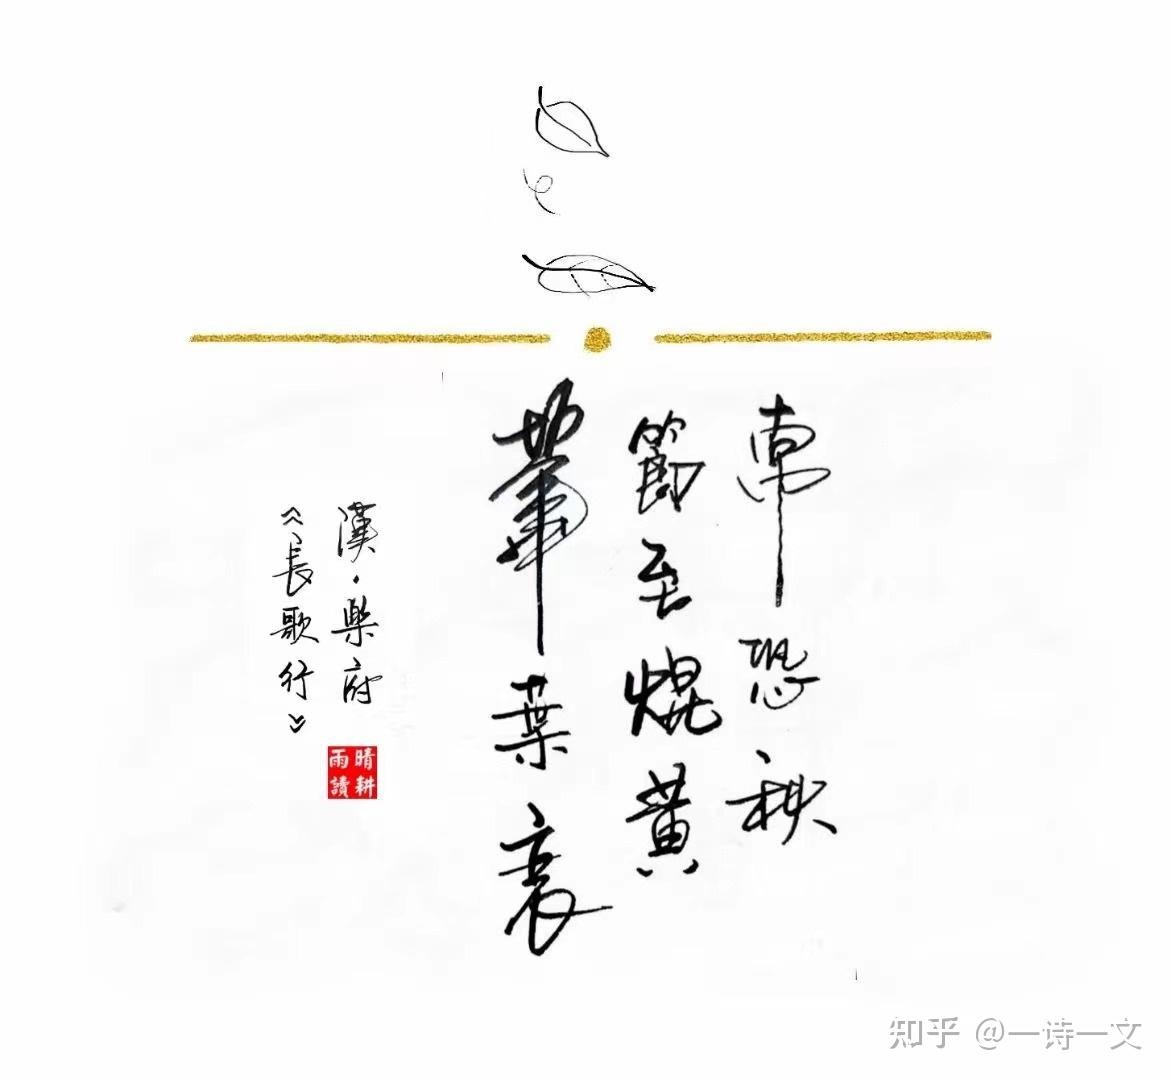 常恐秋
節至焜黄
華葉衰
漢·樂府
《長歌行》
晴耕
雨讀
知乎 @一诗一文